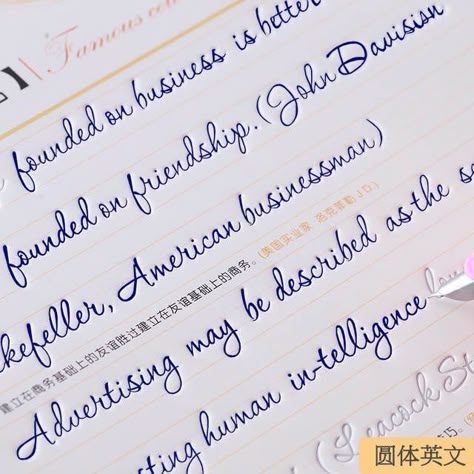 Famous
founded on business is better
founded on friendship. (John Davision
kefeller, American businessman)
建立在商务基础上的友谊胜过建立在友谊基础上的商务。(美国实业家 洛克菲勒 J D)
Advertising may be described as the sc
sting human in-telligence lon
(Leacock St
圆体英文